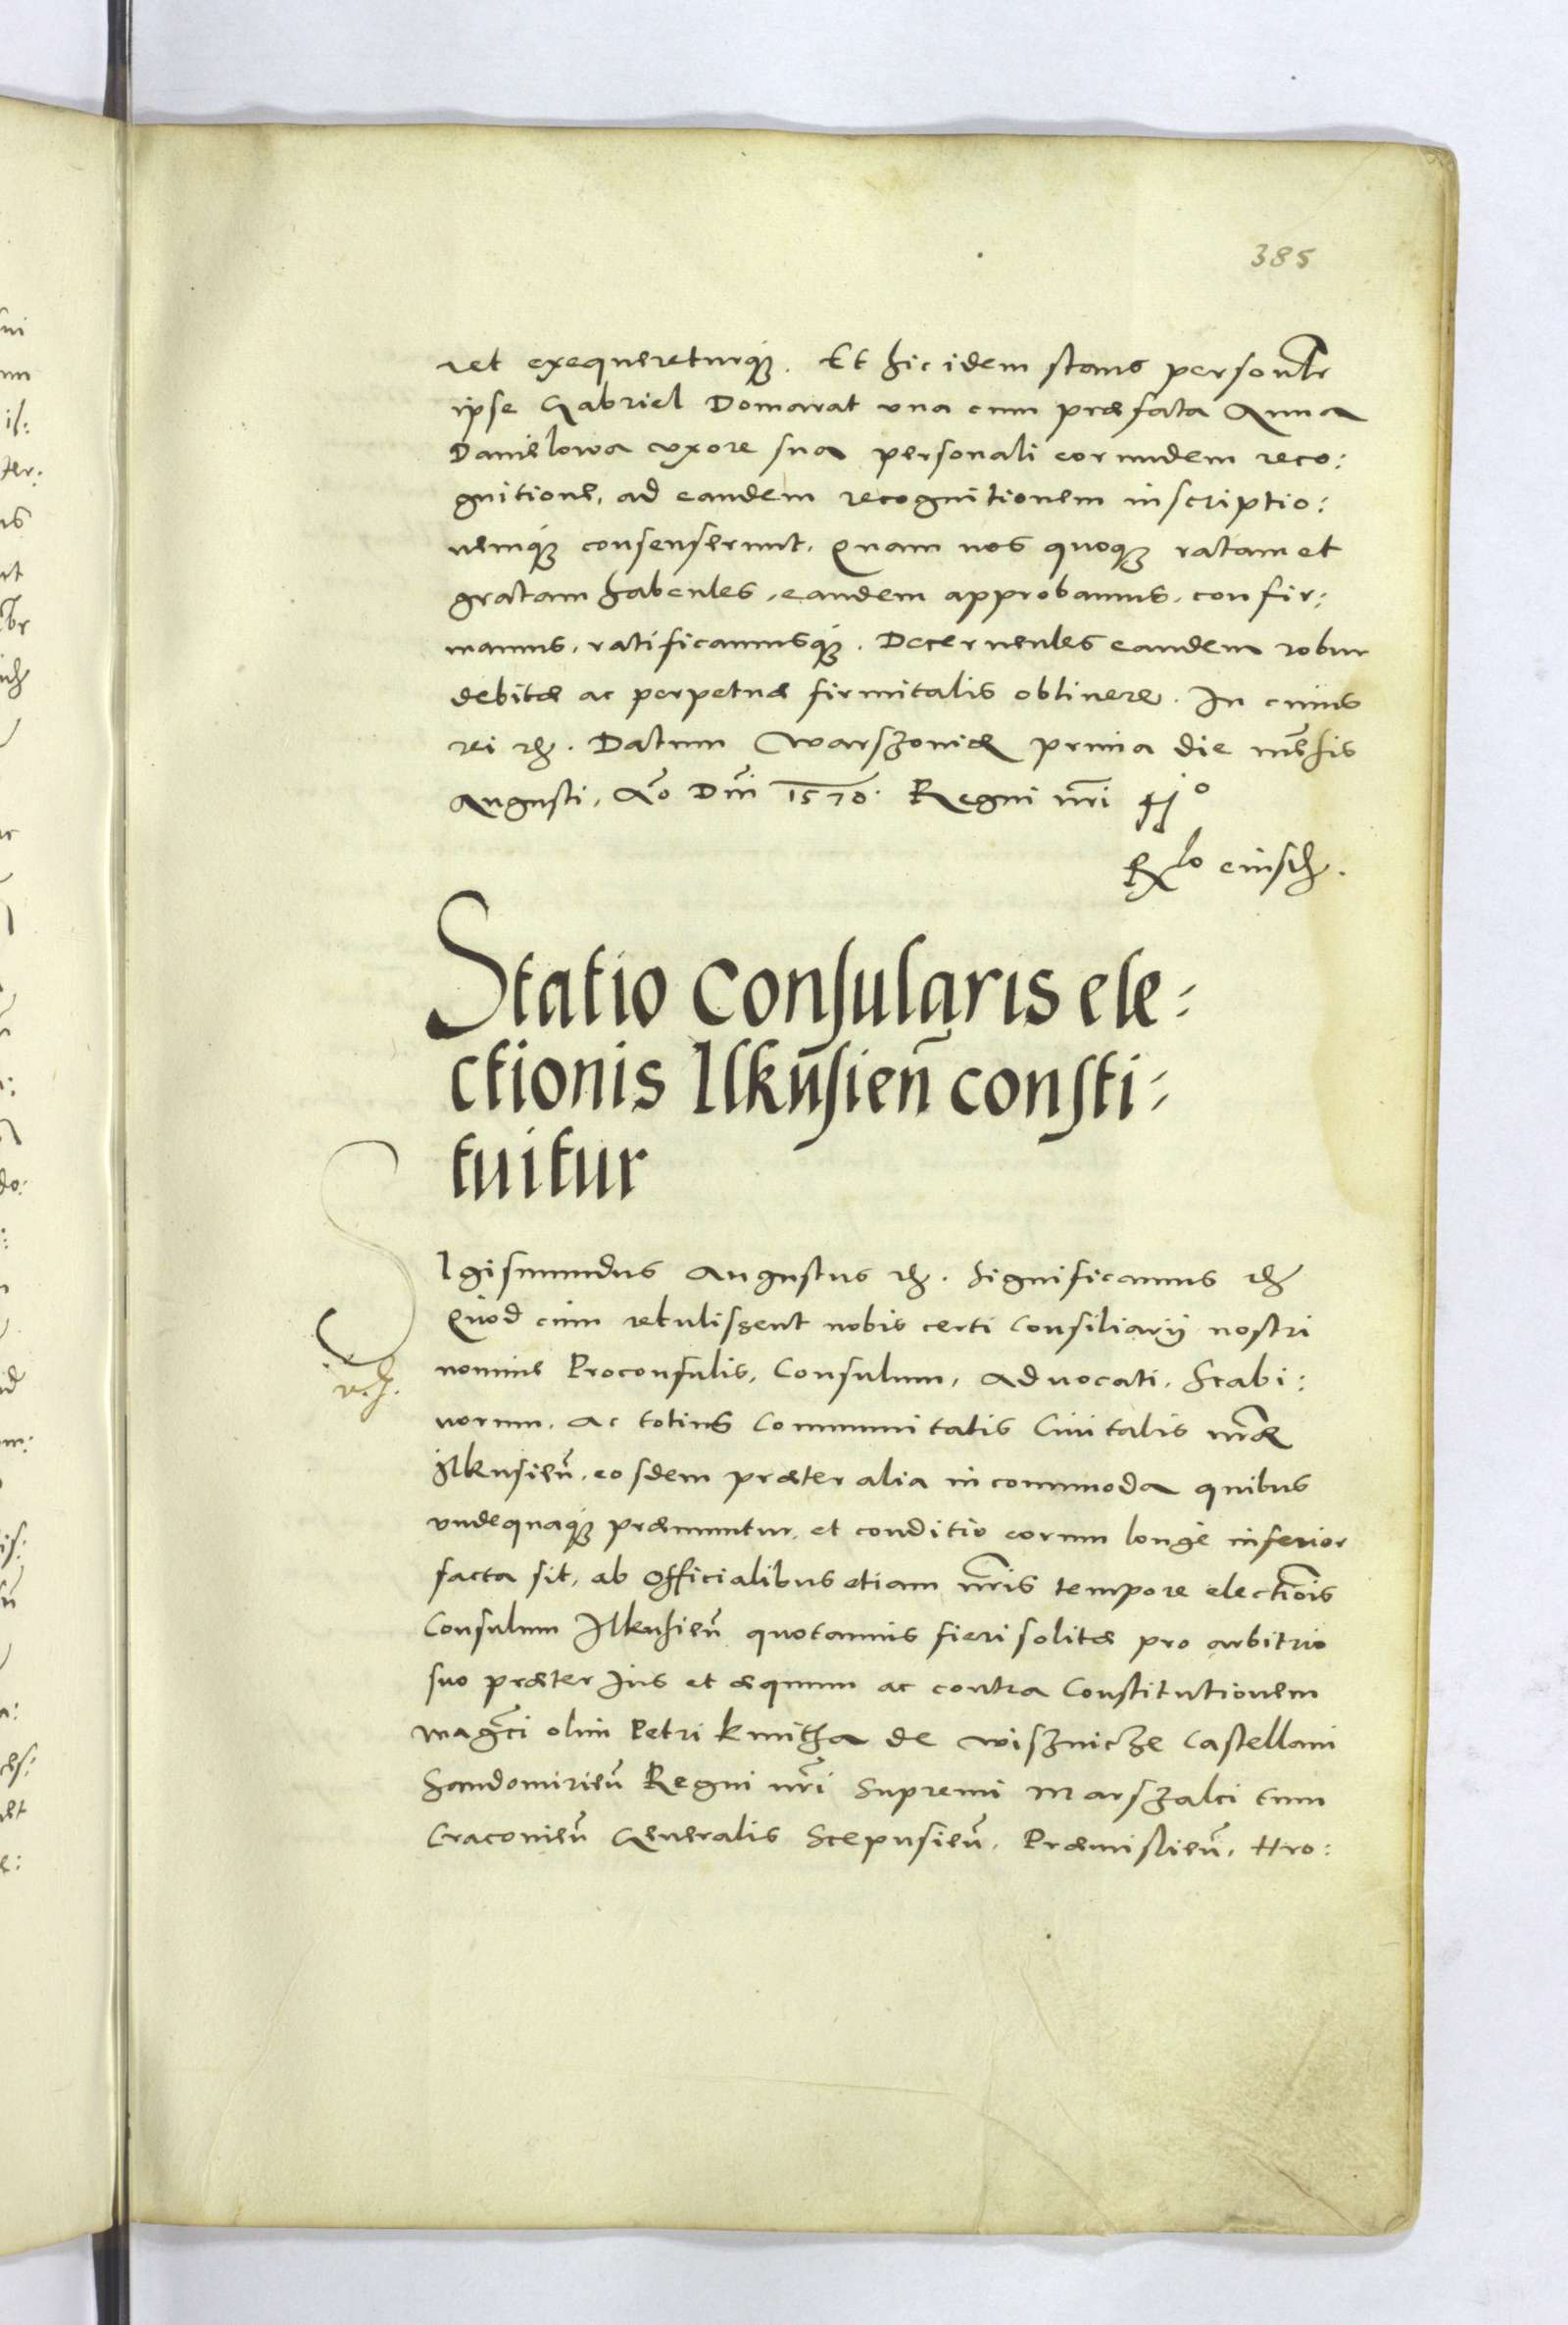 385
ret exequereturqꝫ. Et hic idem stans personlr
ipse Gabriel Domarat vna cum præfata Anna
Danielowa uxore sua personali eorundem reco:
gnitione, ad eandem recognitionem inscriptio:
nemqꝫ consenserunt. Quam nos quoqꝫ ratam et
gratam habentes, eandem approbamus, confir:
mamus, ratificamusqꝫ. Decernentes eandem robur
debitæ ac perpetuæ firmitatis obtinere. In cuius
rei etc. Datum Warszouiæ prima die mēsis
Augusti, Ao Dni 1570. Regni nri 41o
Rlo eiusd.
Statio Consularis ele-
ctionis Ilkūsien̄ consti-
tuitur
SIgismundus Augustus etc. Significamus etc
Quod cum retulissent nobis certi Consiliarij nostri
nomine Proconsulis, Consulum, Aduocati, Scabi:
norum, ac totius Communitatis Ciuitatis nræ
Ilkusien̄, eosdem præter alia incommoda quibus
vndequaqꝫ præmuntur, et conditio eorum longè inferior
facta sit, ab Officialibus etiam nris tempore electiōis
Consulum Ilkusien̄ quotannis fieri solitæ pro arbitrio
suo præter Ius et æquum ac contra Constitutionem
magci olim Petri Kmitha de Wisznicze Castellani
Sandomirien̄ Regni nri Supremi Marszalci tum
Cracouien̄ Generalis Scepusien̄, Præmislien̄, Hro: